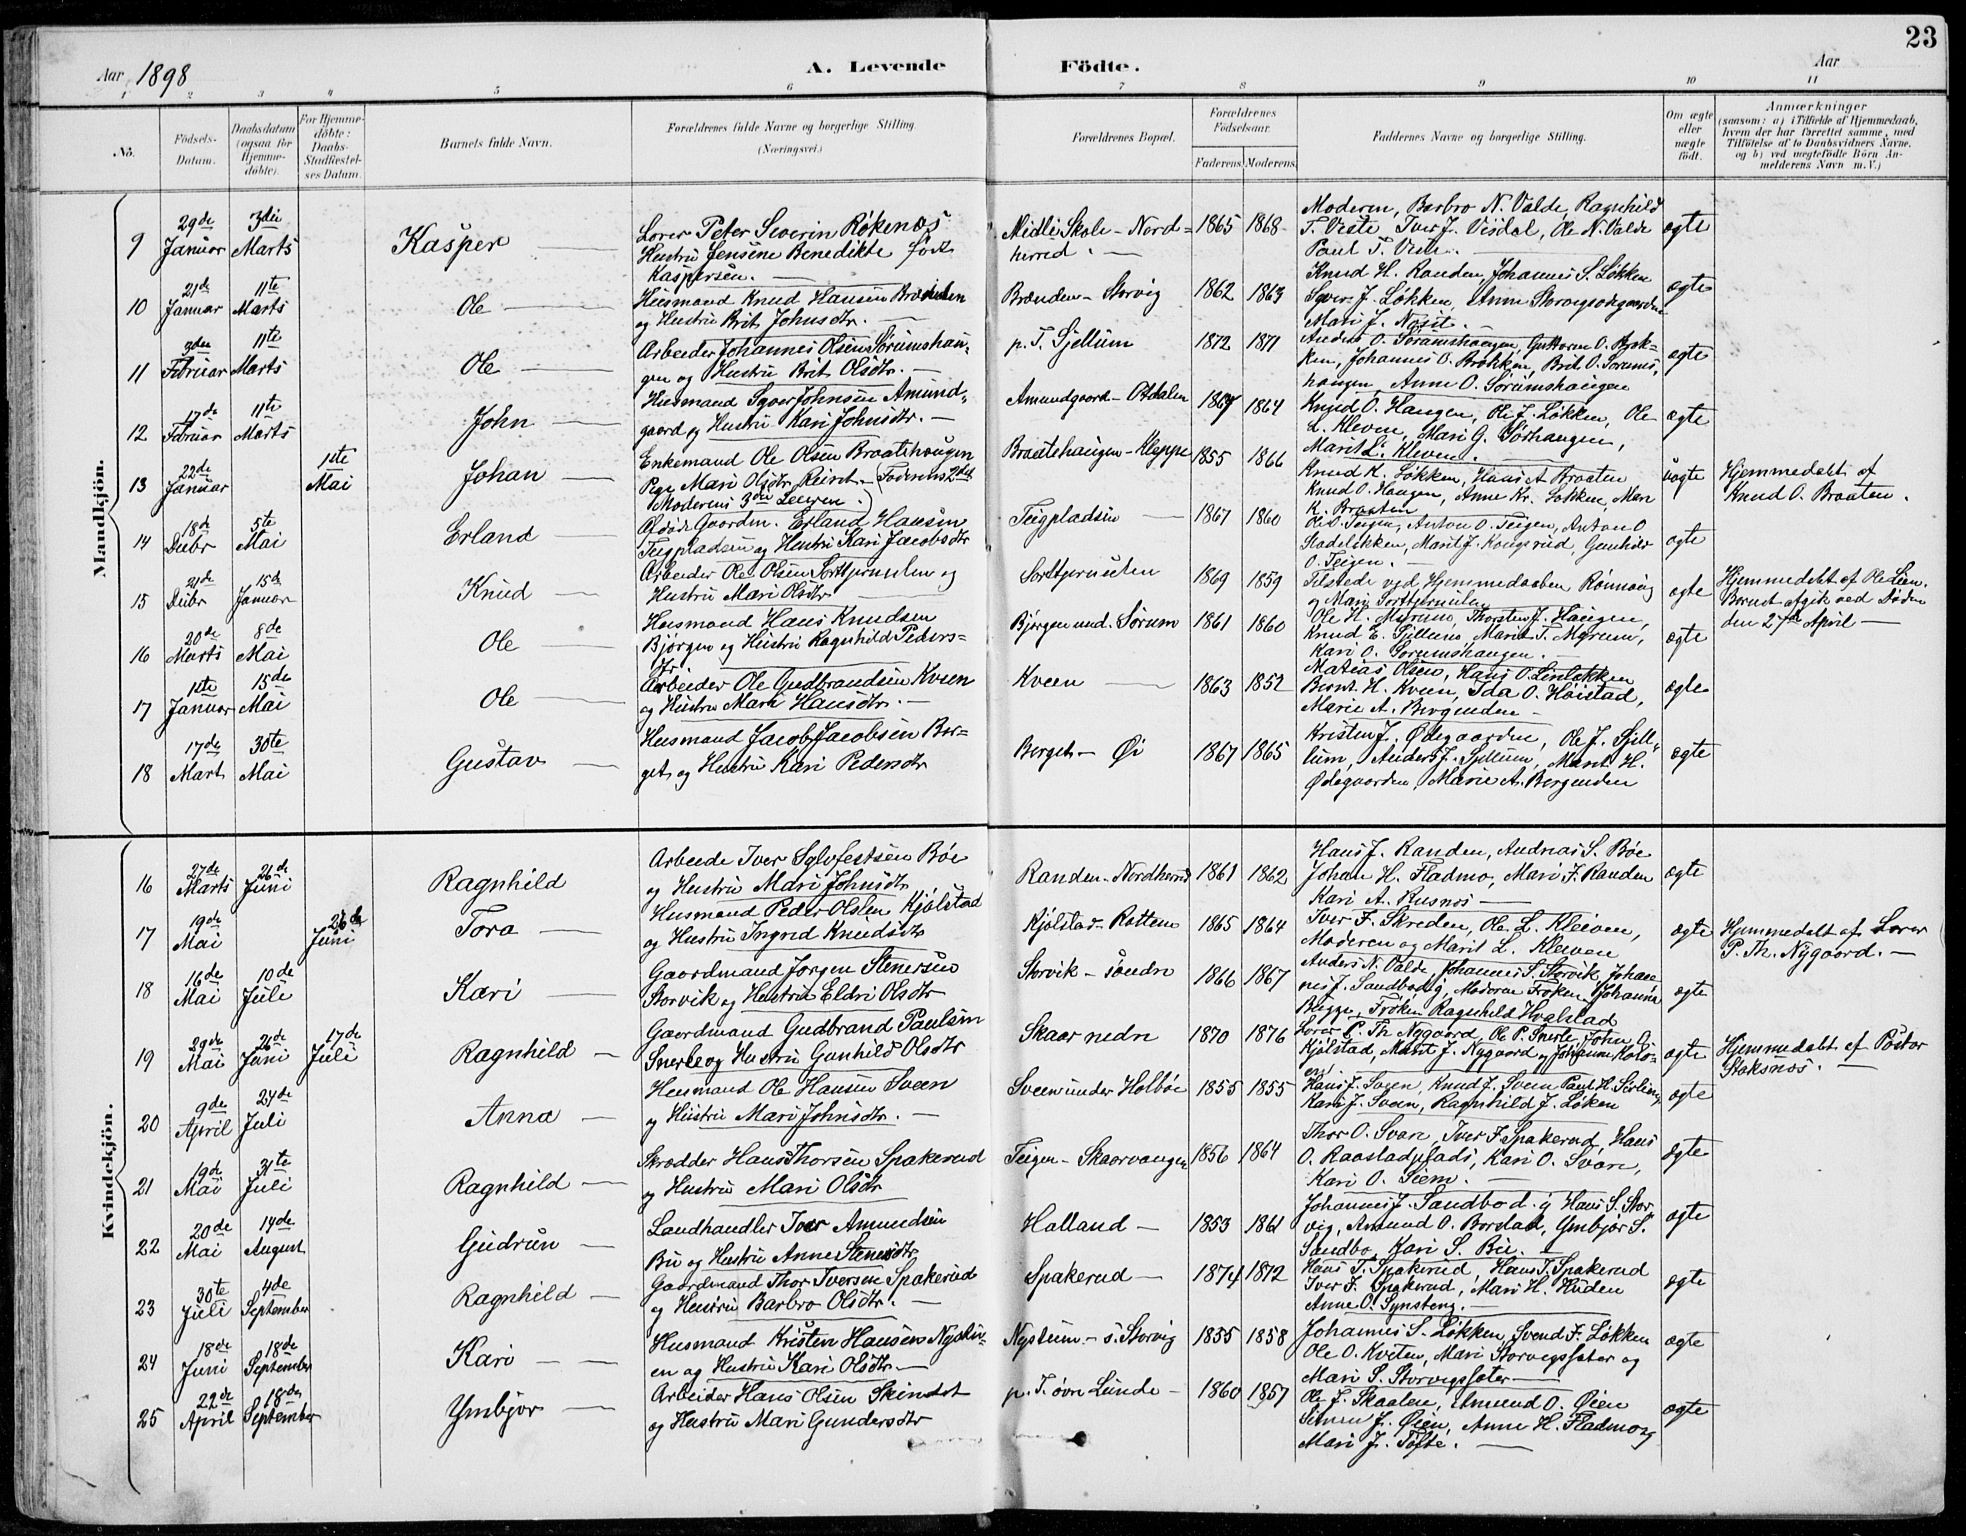 23
Aar 1898
A. Levende Födte.
Aar
1 2 3 4 5 6 7 8 9 10 11
No.
Födsels-Datum.
Daabsdatum (ogsaa for Hjemme-döbte).
For Hjemme-döbte: Daabs-Stadfæstel-ses Datum.
Barnets fulde Navn.
Forældrenes fulde Navne og borgerlige Stilling.
(Næringsvei.)
Forældrenes Bopæl.
Forældrenes Födselsaar.
Faderens. Moderens.
Faddernes Navne og borgerlige Stilling.
Om ægte eller uægte födt.
Anmærkninger
(saasom: a) i Tilfælde af Hjemmedaab, hvem der har forrettet samme, med Tilföielse af to Daabsvidners Navne. og b) ved uægtefödte Börn An-melderens Navn m. V.)
Mandkjön.
9 29de Januar 3die Marts Kasper —
Lærer Peter Severin Røkenæs
Hustru Jensene Benedikte født
Kaspersen. —
Midli Skole - Nord-
herred. - 1865 1868
Moderen, Barbro N. Valde, Ragnhild
T. Veste Iver J. Visdal, Ole N. Valde
Paul T. Veste. —
ægte
10 21de Januar 11te Marts Ole —
Husmand Knud Hansen Brænden
og Hustru Brit Johnsdtr. —
Brænden - Storvig 1862 1863
Knud H. Randen, Johannes S. Løkken
Syver J. Løkken, Anne Storvigsødegaarden
Mari J.
ægte
11 Februar 11te Marts Ole —
Arbeider Johannes Olsen Sørumshau-
gen og Hustru Brit Olsdtr. —
p. T. Sjellum 1872 1871
Anders O. Sørumshaugen, Guttorm O. Bræk-
ken, Johannes O. Brækken, Brit O. Sørums-
haugen, Anne O. Sørumshaugen
ægte
12 17de Februar 11te Marts John —
Husmand Syver Johnsen Amund-
gaard og Hustru Kari Johnsdtr. —
Amundgaard - Ottdalen 1864
Knud O. Haugen, Ole J. Løkken, Ole
L. Kleven, Mari G. Sørhaugen,
Marit L. Kleven. —
ægte
13 22de Januar 1ste Mai Johan —
Enkemand Ole Olsen Braatehaugen
Pige Mari Olsdtr. Reiret. (Faderens 2det
Moderens 3die Leiern.)
Braatehaugen - Kleppe 1855 1866
Knud K. Løkken, Hans A. Braaten
Knud O. Haugen, Anne Kr. Løkken, Mari
K. Braaten
uægte
Hjemmedøbt af
Knud O. Braaten.
14 18de Debr 5te Mai Erland —
Gaardm. Erland Hansen
Teigpladsen og Hustru Kari Jacobsdtr
Teigpladsen — 1867 1860
Ole O. Teigen, Anton O. Teigen, Anton O
Stadeløkken, Marit J. Kongsrud, Gunhild
O. Teigen. —
ægte
15 21de Debr 15de Januar Knud —
Arbeider Ole Olsen Sorttjernulen og
Hustru Mari Olsdtr —
Sorttjernulen 1869 1859
Tilstede ved Hjemmedaaben Rønnaug
og Mari Sorttjernulen
ægte
Hjemmedøbt af Ole Lien.
Barnet afgik ved Døden
den 27de April —
16 20de Marts 8de Mai Ole —
Husmand Hans Knudsen
Bjørgen og Hustru Ragnhild Peders-
dtr
Bjørgen und. Sørum 1861 1860
Ole H. Myrum, Thorsten J. Haugen,
Knud E. Sjellum, Marit T. Myrum,
Kari O. Sørumshaugen. —
ægte
17 1ste Januar 15de Mai Ole —
Arbeider Ole Gudbrandsen Kveen
og Hustru Mari Hansdtr. —
Kveen — 1863 1852
Matias Olsen, Hans O. Linløkken
Bernt H. Kveen, Ida O. Høistad,
Marie A. Bergenden —
ægte
18 17de Mart 30te Mai Gustav —
Husmand Jacob Jacobsen Ber-
get og Hustru Kari Pedersdtr
Berget - Øi 1867 1865
Kristen J. Ødegaarden, Ole J. Sjell-
lum, Anders J. Sjellum, Marit H.
Ødegaarden, Marie A. Bergenden
ægte
Kvindekjön.
16 27de Marts 26de Juni Ragnhild
Arbeide Iver Sylfestsen Bøe
og Hustru Mari Johnsdtr
Randen - Nordherred 1861 1862
Hans J. Randen, Andreas S. Bøe
Johan H. Fladmo, Mari J. Randen
Kari A. Rusnæs —
ægte
17 19de Mai 26de Juni Tora —
Husmand Peder Olsen Kjølstad
og Hustru Ingrid Knudsdtr
Kjølstad - Rottem 1865 1864
Iver F. Skreden, Ole L. Kleiven,
Moderen og Marit L. Kleiven
ægte
Hjemmedøbt af Lærer
P. Th. Nygaard. —
18 16de Mai 10de Juli Kari —
Gaardmand Jørgen Stenersen
Storvik og Hustru Eldri Olsdtr
Storvik - søndre 1866 1867
Anders N. Valde, Johannes S. Storvik, Johan-
nes J. Sandbo d.y, Moderen Frøken Johanna
Bugge, Frøken Ragnhild Hvalstad
ægte
19 29de Mai 26de Juni 17de Juli Ragnhild —
Gaardmand Gudbrand Paulsen
Snerle og Hustru Gunhild Olsdtr
Skaar nedre 1870 1876
Lærer P. Th. Nygaard, Ole P. Snerle, John
Kjølstad, Marit J. Nygaard og Johanne
ægte
Hjemmedøbt af Pastor
Stoksnæs. —
20 9de April 24de Juli Anna —
Husmand Ole Hansen Sveen
og Hustru Mari Johnsdtr. —
Sveen under Holbøe 1855 1855
Hans J. Sveen, Knud J. Sveen Paul H.
Kari J. Sveen, Ragnhild J. Løken
ægte
21 19de Mai 31te Juli Ragnhild —
Skrædder Hans Thorsen Spakerud
og Hustru Mari Olsdtr
Teigen - Skaarvangen 1856 1864
Thor O. Svare, Iver J. Spakerud, Hans
O. Raastadplads, Kari O. Svare,
Kari O. Siem. —
ægte
22 20de Mai 14de August Gudrun —
Landhandler Iver Amundsen
Bu og Hustru Anne Stenersdtr
Holland — 1853 1861
Johannes J. Sandbo d. y Hans S. Stor-
vig, Amund O. Bordad, Ymbjør S.
Sandbo, Kari S. Bu. —
ægte
23 30te Juli 4de September Ragnhild —
Gaardmand Thor Iversen Spakerud
og Hustru Barbro Olsdtr. —
Spakerud — 1874 1872
Hans T. Spakerud, Hans T. Spakerud
Iver J. Spakerud, Mari H. Uden
Anne O. Synsteng. —
ægte
24 18de Juni 18de September Kari — —
Husmand Kristen Hansen Nystu-
en og Hustru Kari Olsdtr. —
Nystuen - s. Storvig 1855 1858
Johannes S. Løkken, Svend F. Løkken
Ole O. Kveten, Mari Storvigsæter og
Mari S. Storvigsæter —
ægte
25 22de April 18de September Ymbjør —
Arbeider Hans Olsen Skindet
og Hustru Mari Gundersdtr
p. T. øvre Lunde — 1860 1857
Ole J. Skaalen, Amund O. Øien
Simen J. Øien, Anne H. Fladmo og
Mari J. Tofte. —
ægte